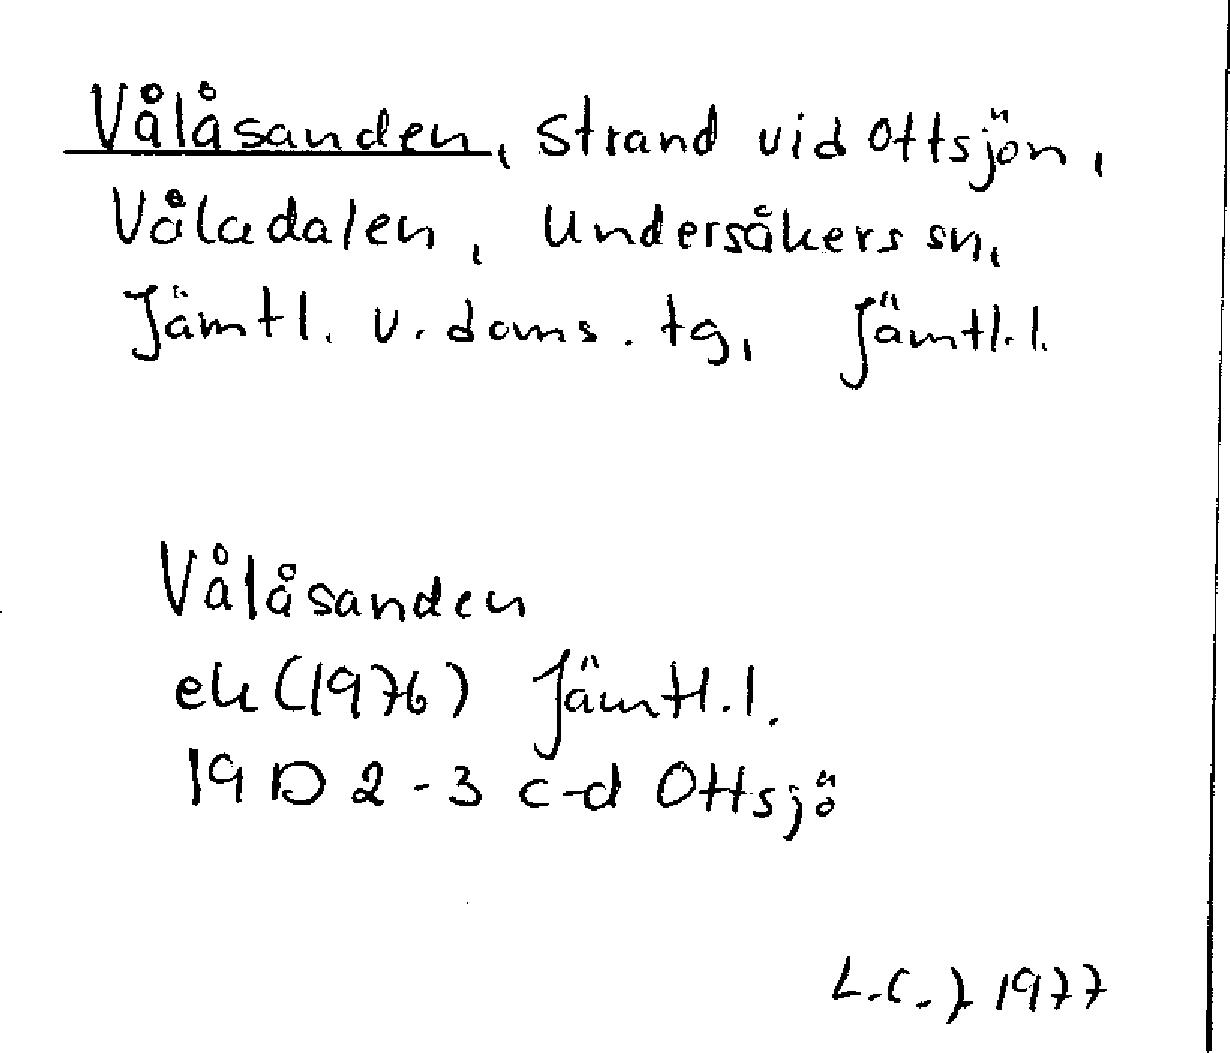 Vålåsanden, strand vid Ottsjön,
Våladalen, Undersåkers sn,
Jämtl. v. doms. tg, Jämtl. l.
Vålåsanden
ek (1976) Jämtl. l.
19 D 2-3 c-d Ottsjö
L.C.J. 1977